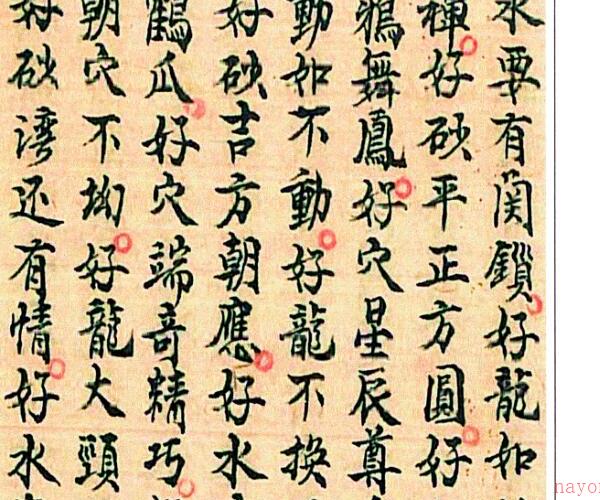 水要有関鎖好龍如
禪好砂平正方圓好
鴉舞鳳好穴星辰尊
動如不動好龍不換
好砂吉方朝應好水
鶴爪好穴端竒精巧
朝穴不拗好龍大頸
好砂湾还有情好水
nayo